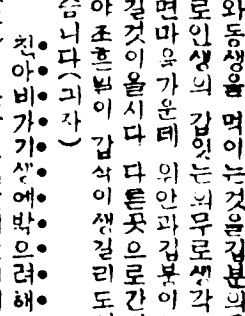 와동생을 먹이는것을깁분의
로인생의 갑잇는의무로생각
면마음가운데 위안과깁붐이
길것이올시다 다른곳으로간
야조흔법이 갑삭이생길리도
습니다(긔자)
친아비가기생에박으려해